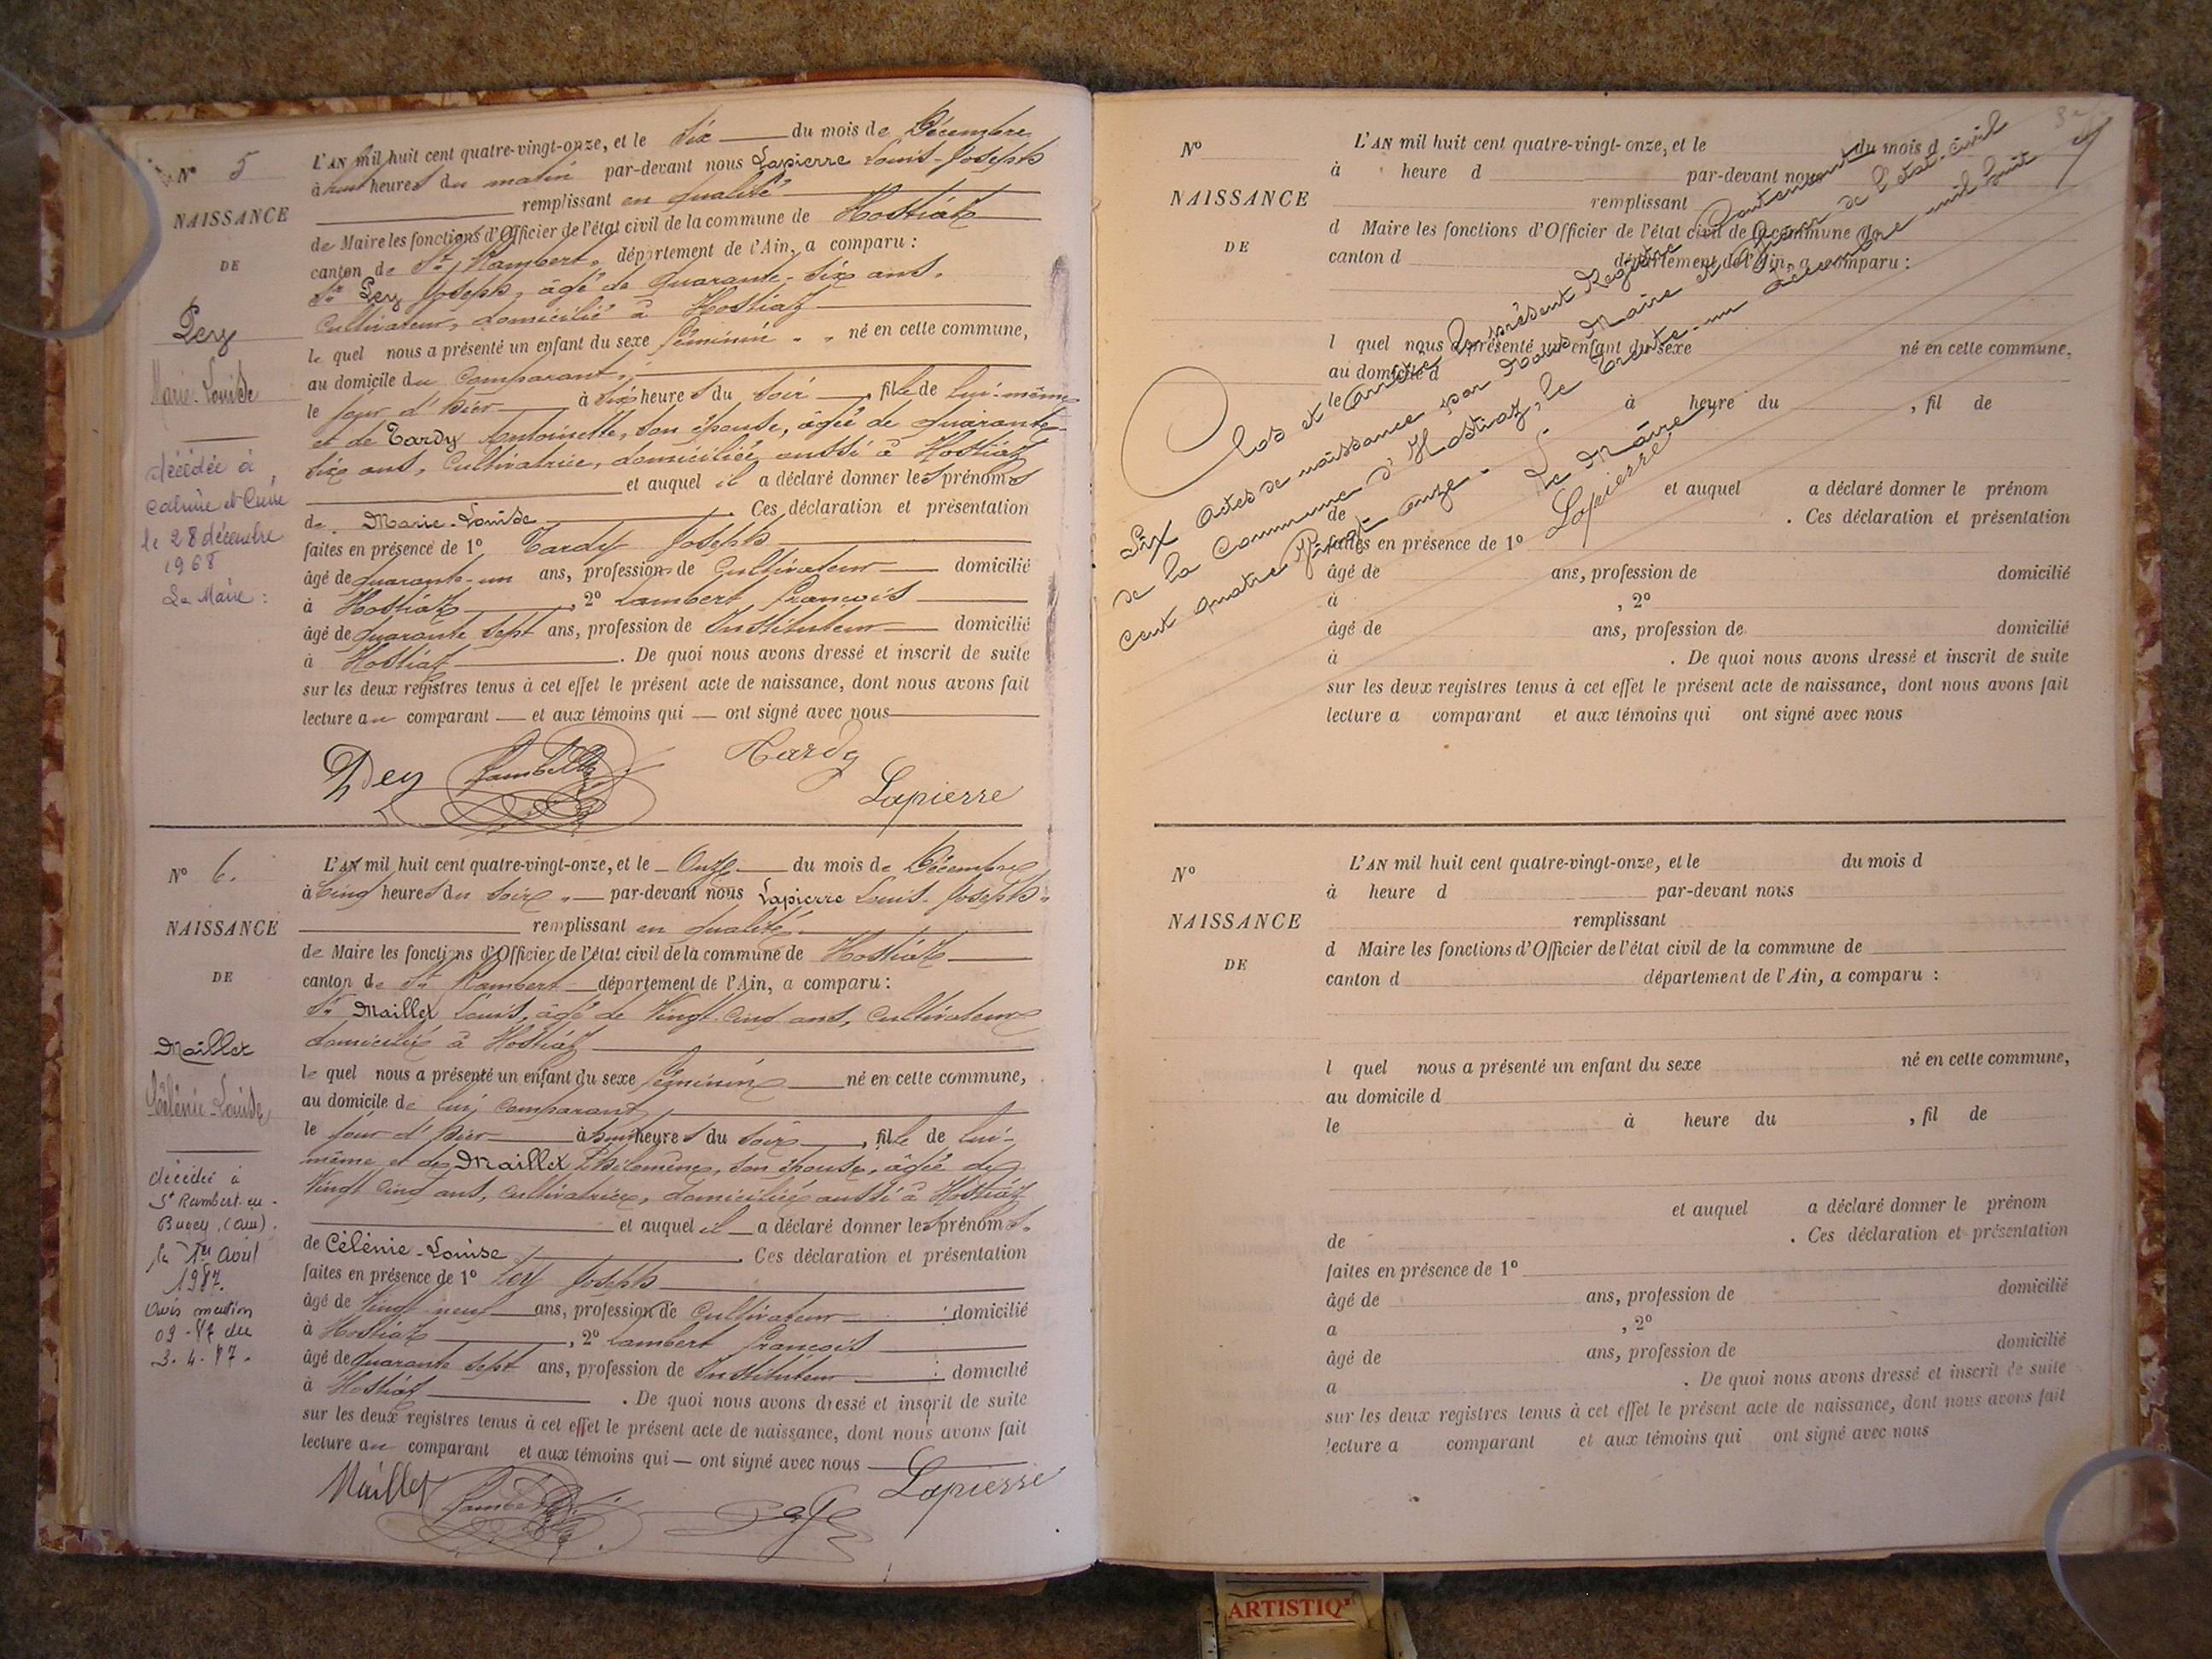 N° 5
NAISSANCE
DE
Pey
Marie-Louise
décédée à
Caluire et Cuire
le 28 décembre
1968
Le Maire :
L'AN mil huit cent quatre-vingt-onze, et le six du mois de Décembre
à huit heures du matin par-devant nous Lapierre Louis-Joseph
remplissant en qualité
de Maire les fonctions d'Officier de l'état civil de la commune de Hostiaz
canton de St Rambert, département de l'Ain, a comparu :
Sr Pey Joseph, âgé de quarante-six ans,
Cultivateur, domicilié à Hostiaz
le quel nous a présenté un enfant du sexe féminin né en cette commune,
au domicile du Comparant,
le jour d'hier à six heures du soir, fille de lui-même
et de Tardy Antoinette, son épouse, âgée de quarante-
six ans, Cultivatrice, domiciliée aussi à Hostiaz
et auquel il a déclaré donner les prénoms
de Marie-Louise. Ces déclaration et présentation
faites en présence de 1° Tardy Joseph
âgé de quarante-un ans, profession de Cultivateur domicilié
à Hostiaz, 2° Lambert François
âgé de quarante sept ans, profession de Instituteur domicilié
à Hostiaz. De quoi nous avons dressé et inscrit de suite
sur les deux registres tenus à cet effet le présent acte de naissance, dont nous avons fait
lecture au comparant et aux témoins qui ont signé avec nous
Pey Lambert Tardy
Lapierre
N° 6.
NAISSANCE
DE
Maillet
Célénie-Louise
décédée à
St Rambert-en-
Bugey (Ain).
le 1er Avril
1987.
Avis mention
09-87 du
3.4.87.
L'AN mil huit cent quatre-vingt-onze, et le Onze du mois de Décembre
à Cinq heures du soir par-devant nous Lapierre Louis-Joseph
remplissant en qualité
de Maire les fonctions d'Officier de l'état civil de la commune de Hostiaz
canton de St Rambert département de l'Ain, a comparu :
Sr Maillet Louis, âgé de Vingt Cinq ans, Cultivateur
domicilié à Hostiaz
le quel nous a présenté un enfant du sexe féminin né en cette commune,
au domicile de lui comparant
le jour d'hier à huit heures du soir, fille de lui-
même et de Maillet Philomène, son épouse, âgée de
Vingt Cinq ans, cultivatrice, domiciliée aussi à Hostiaz
et auquel il a déclaré donner les prénoms
de Célénie-Louise. Ces déclaration et présentation
faites en présence de 1° Pey Joseph
âgé de Vingt neuf ans, profession de Cultivateur domicilié
à Hostiaz, 2° Lambert François
âgé de quarante sept ans, profession de Instituteur domicilié
à Hostiaz. De quoi nous avons dressé et inscrit de suite
sur les deux registres tenus à cet effet le présent acte de naissance, dont nous avons fait
lecture au comparant et aux témoins qui ont signé avec nous
Maillet Lambert Pey Lapierre
N°
NAISSANCE
DE
L'AN mil huit cent quatre-vingt-onze, et le du mois d
à heure d par-devant nous
remplissant
d Maire les fonctions d'Officier de l'état civil de la commune de
canton d département de l'Ain, a comparu :
l quel nous a présenté un enfant du sexe né en cette commune,
au domicile d
le à heure du , fil de
et auquel a déclaré donner le prénom
de . Ces déclaration et présentation
faites en présence de 1°
âgé de ans, profession de domicilié
à , 2°
âgé de ans, profession de domicilié
à . De quoi nous avons dressé et inscrit de suite
sur les deux registres tenus à cet effet le présent acte de naissance, dont nous avons fait
lecture a comparant et aux témoins qui ont signé avec nous
Clos et Arrêté le présent Registre Contenant
Six Actes de naissance par Nous Maire et Officier de l'état-civil
de la Commune d'Hostiaz, le Trente-un décembre mil huit
Cent quatre Vingt onze.
Le Maire,
Lapierre
N°
NAISSANCE
DE
L'AN mil huit cent quatre-vingt-onze, et le du mois d
à heure d par-devant nous
remplissant
d Maire les fonctions d'Officier de l'état civil de la commune de
canton d département de l'Ain, a comparu :
l quel nous a présenté un enfant du sexe né en cette commune,
au domicile d
le à heure du , fil de
et auquel a déclaré donner le prénom
de . Ces déclaration et présentation
faites en présence de 1°
âgé de ans, profession de domicilié
a , 2°
âgé de ans, profession de domicilié
a . De quoi nous avons dressé et inscrit de suite
sur les deux registres tenus à cet effet le présent acte de naissance, dont nous avons fait
lecture a comparant et aux témoins qui ont signé avec nous
ARTISTIQ